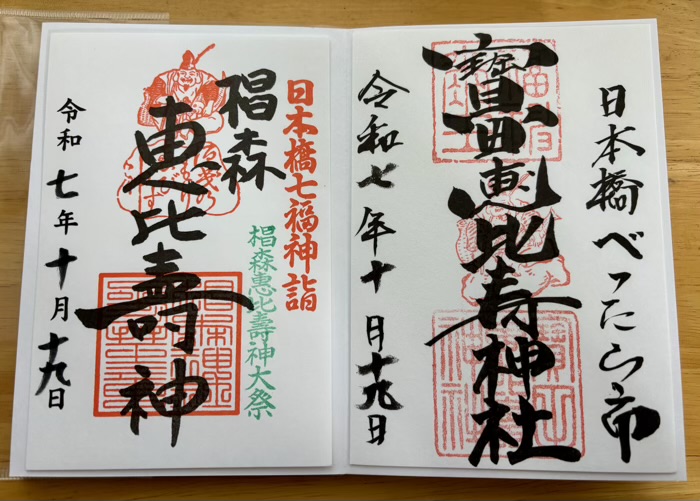 日本橋べったら市
寳田恵比寿神社
令和七年十月十九日
日本橋七福神詣
椙森恵比壽神大祭
椙森
恵比壽神
令和七年十月十九日